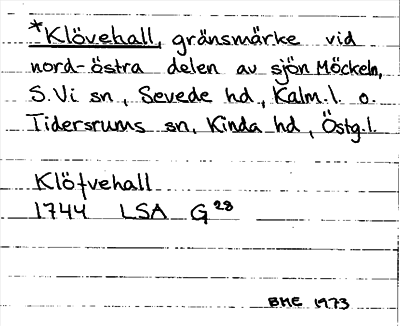 *Klövehall, gränsmärke vid
nord-östra delen av sjön Möckeln,
S. Vi sn, Sevede hd, Kalm.l. o.
Tidersrums sn, Kinda hd, Östg.l.
Klöfvehall
1744 LSA G 28
BHE 1973